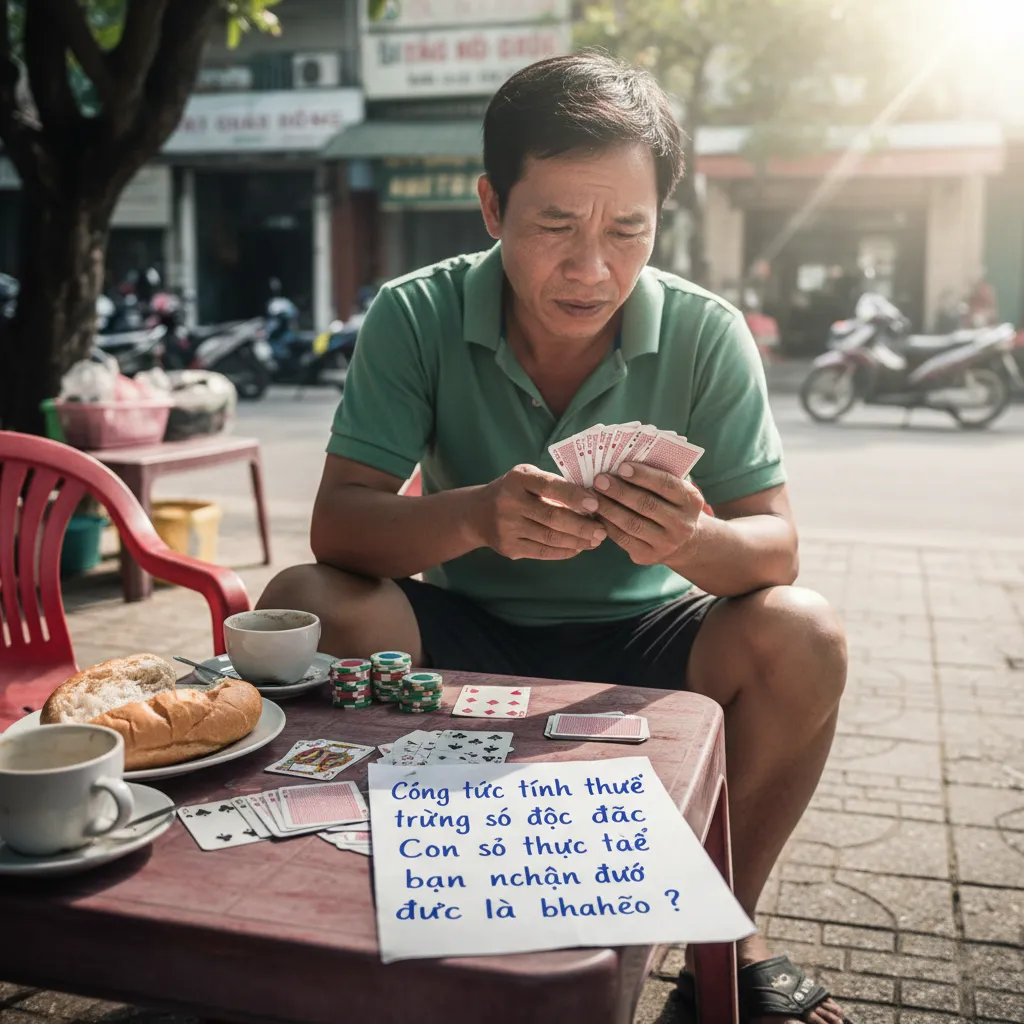 Cóng tức tính thuế
trừng só độc đăc
Con sỏ thực taể
bạn nchận đướ
đưc là bhahẽo ?